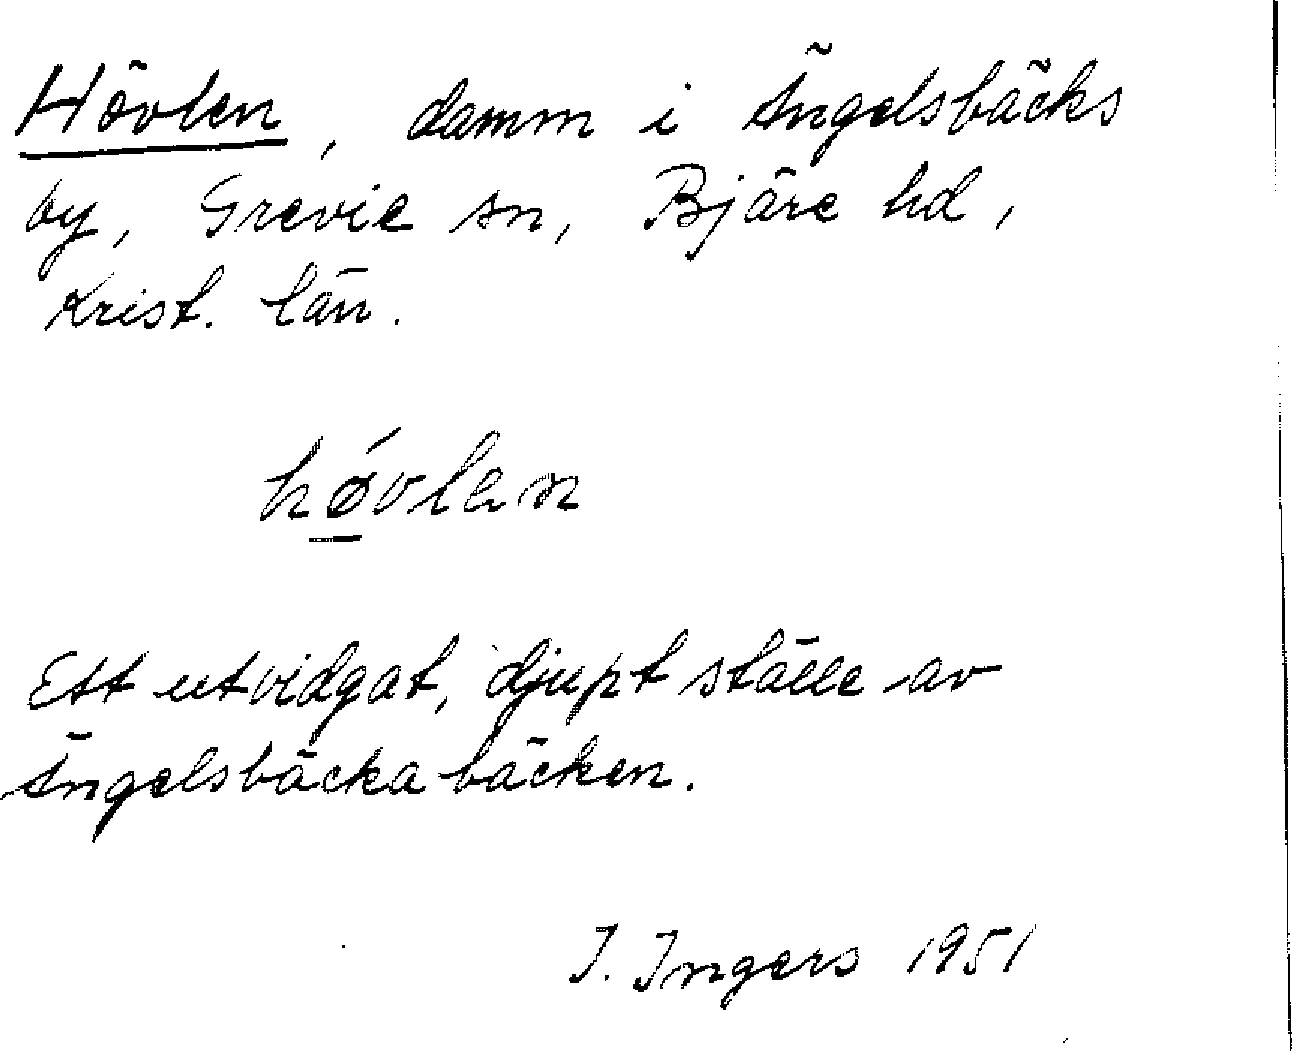 Hövlen, damm i Ängelsbäcks
by, Grevie sn, Bjäre hd,
Krist. län.
hǿvlen
Ett utvidgat, djupt ställe av
Ängelsbäcka bäcken.
I. Ingers 1951